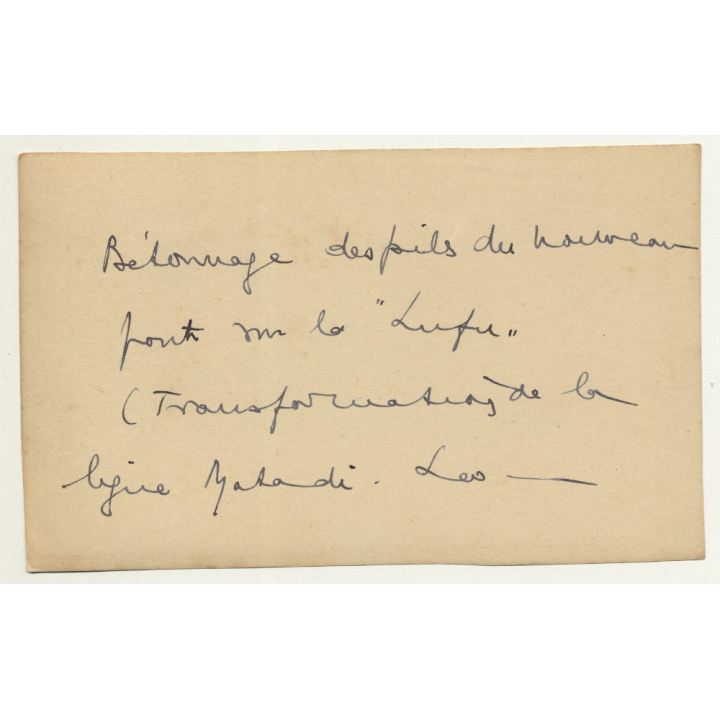 Bétonnage des pils du nouveau
pont sur la "Lufu"
(Transformation de la
ligne Matadi. Leo —